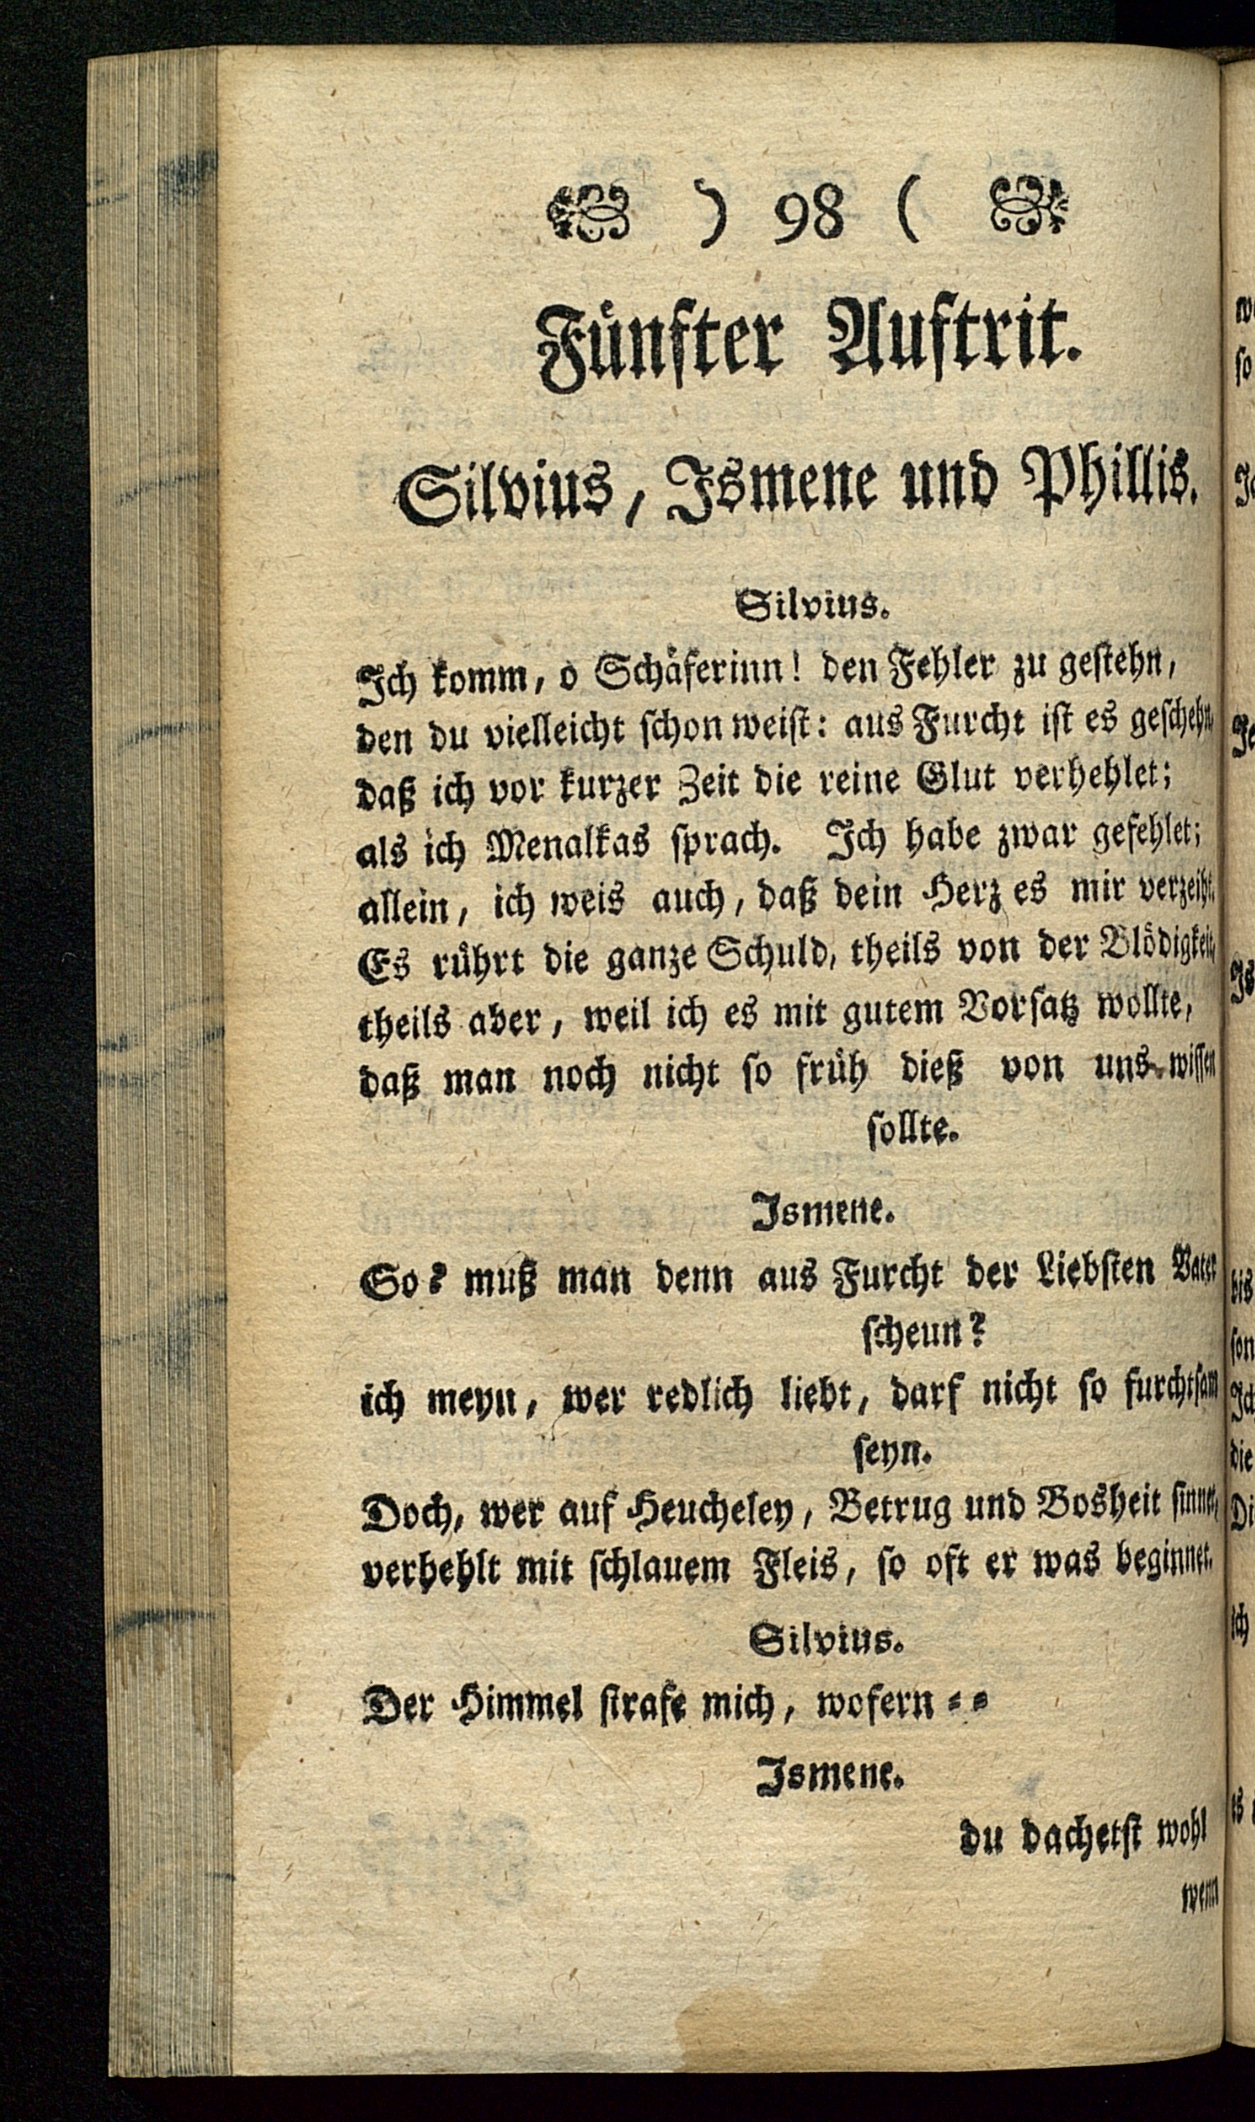 ) 98 (
Fünfter Auftrit.
Silvius, Ismene und Phillis.
Silvius.
Ich komm, o Schäferinn! den Fehler zu gestehn,
den du vielleicht schon weist: aus Furcht ist es geschehn,
daß ich vor kurzer Zeit die reine Glut verhehlet;
als ich Menalkas sprach. Ich habe zwar gefehlet;
allein, ich weis auch, daß dein Herz es mir verzeiht.
Es rührt die ganze Schuld, theils von der Blödigkeit,
theils aber, weil ich es mit gutem Vorsatz wollte,
daß man noch nicht so früh dieß von uns wissen
sollte.
Ismene.
So? muß man denn aus Furcht der Liebsten Vater
scheun?
ich meyn, wer redlich liebt, darf nicht so furchtsam
seyn.
Doch, wer auf Heucheley, Betrug und Bosheit sinnet,
verhehlt mit schlauem Fleis, so oft er was beginnet.
Silvius.
Der Himmel strafe mich, wofern = =
Ismene.
du dachetst wohl
wenn